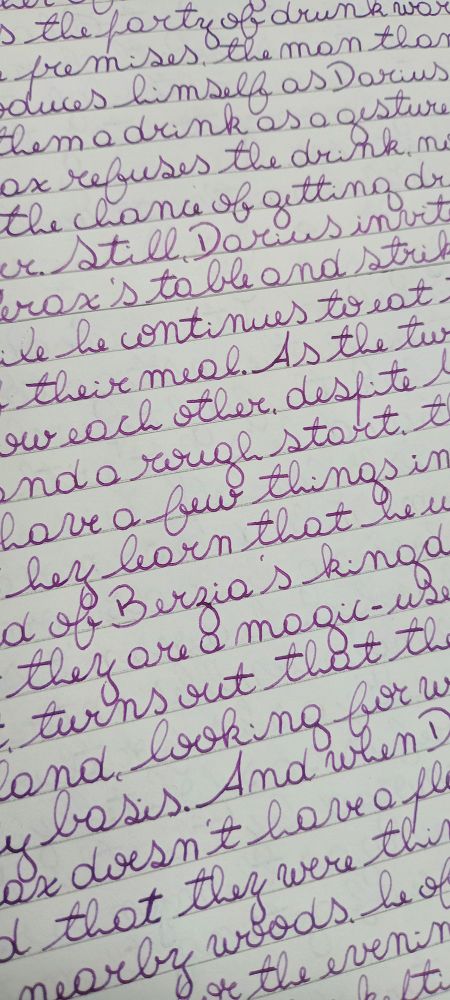 s the party of drunk war
premises, the man than
oduces himself as Darius
them a drink as a gesture
ax refuses the drink, no
the chance of getting dr
er. Still, Darius invit
erax's table and strik
ile he continues to eat
their meal. As the tw
ow each other, despite
and a rough start, th
have a few things in
hey learn that he u
d of Berzia's kingd
they are a magic-use
t turns out that the
land, looking for w
y basis. And when D
ax doesn't have a fle
d that they were thin
nearby woods, he of
or the evenin